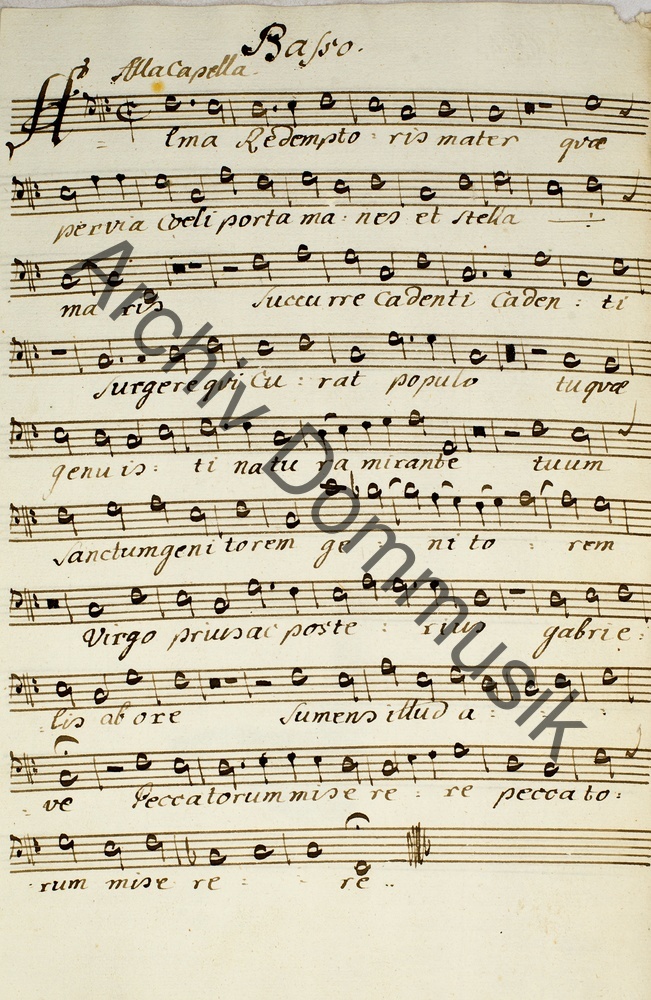 Basso.
Alla Capella.
Alma Redempto : ris mater quæ
pervia Coeli porta ma : nes et stella
ma ris succurre Cadenti Caden : ti
surgere qui Cu : rat populo tu quæ
genuis : ti natu ra mirante tuum
sanctum genitorem ge : ni to : rem
Virgo prius ac poste : rius gabrie :
lis ab ore sumens illud a :
ve Peccatorum mise re : re peccato :
rum mise re : re ..
Archiv Dommusik